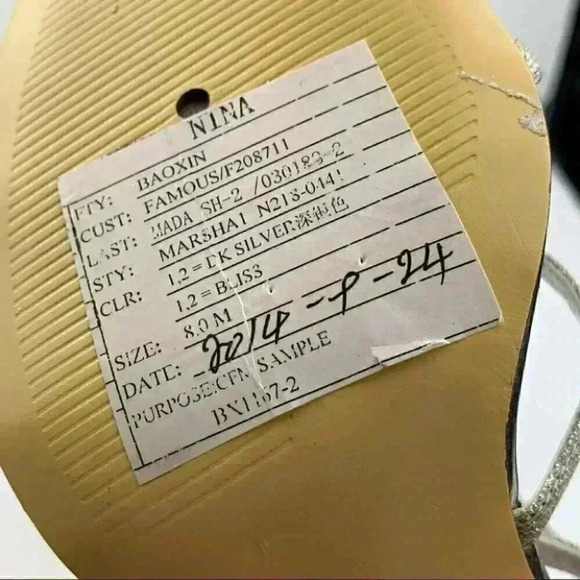 NINA
FTY: BAOXIN
CUST: FAMOUS/F208711
LAST: MADA SH-2 /030183-2
STY: MARSHAI N213-0441
CLR: 1,2=DK SILVER
1,2=BLISS
SIZE: 8.0 M
DATE: 2014-9-24
PURPOSE:CFN SAMPLE
BX1167-2